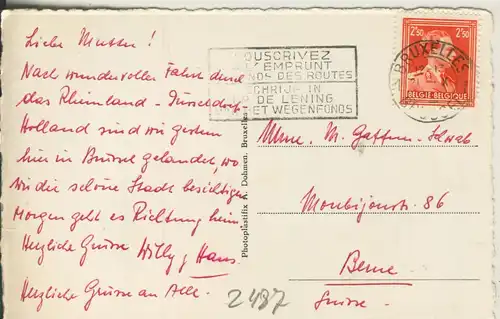 Liebe Mutter!
Nach wundervoller Fahrt durch
das Rheinland - Düsseldorf -
Holland sind wir gestern
hier in Brüssel gelandet, wo
wir die schöne Stadt besichtigen
Morgen geht es Richtung heim
Herzliche Grüsse Willy & Hans.
Herzliche Grüsse an Alle.
2487
Photoplastifix A. Dohmen. Bruxelles
OUSCRIVEZ
EMPRUNT
NDS DES ROUTES
CHRIJF IN
DE LENING
ET WEGENFONDS
BRUXELLES
2F50 2F50
BELGIE-BELGIQUE
Mme. M. Schwab
Monbijoustr. 86
Berne
Suisse.